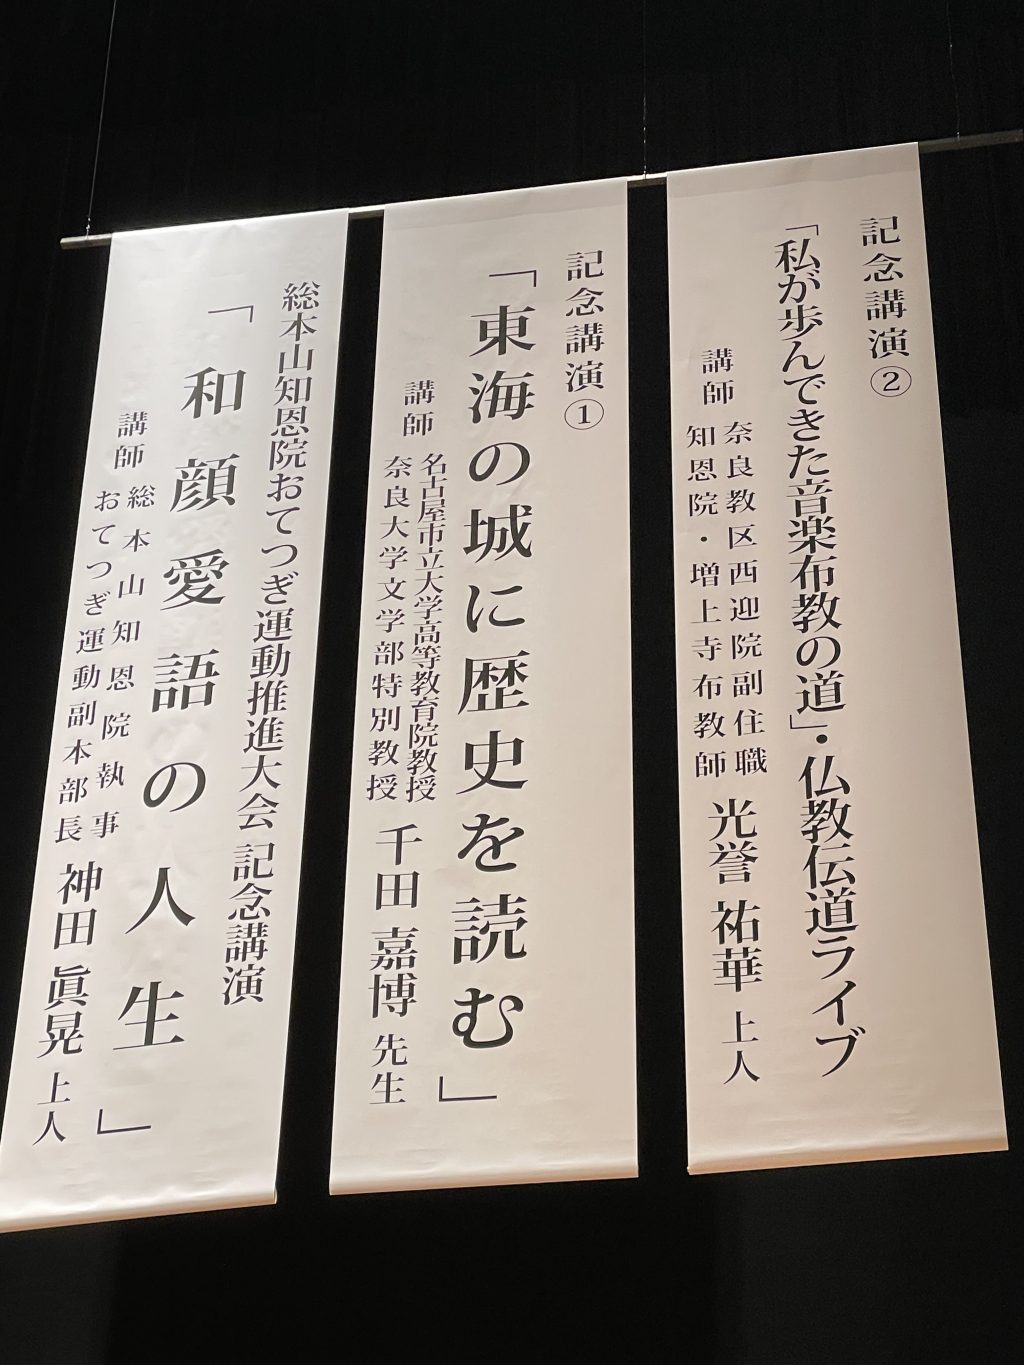 記念講演②
「私が歩んできた音楽布教の道」・仏教伝道ライブ
講師
奈良教区西迎院副住職
知恩院・増上寺布教師
光誉 祐華 上人
記念講演①
「東海の城に歴史を読む」
講師
名古屋市立大学高等教育院教授
奈良大学文学部特別教授
千田 嘉博 先生
総本山知恩院おてつぎ運動推進大会 記念講演
「和顔愛語の人生」
講師
総本山知恩院執事
おてつぎ運動副本部長
神田 眞晃 上人